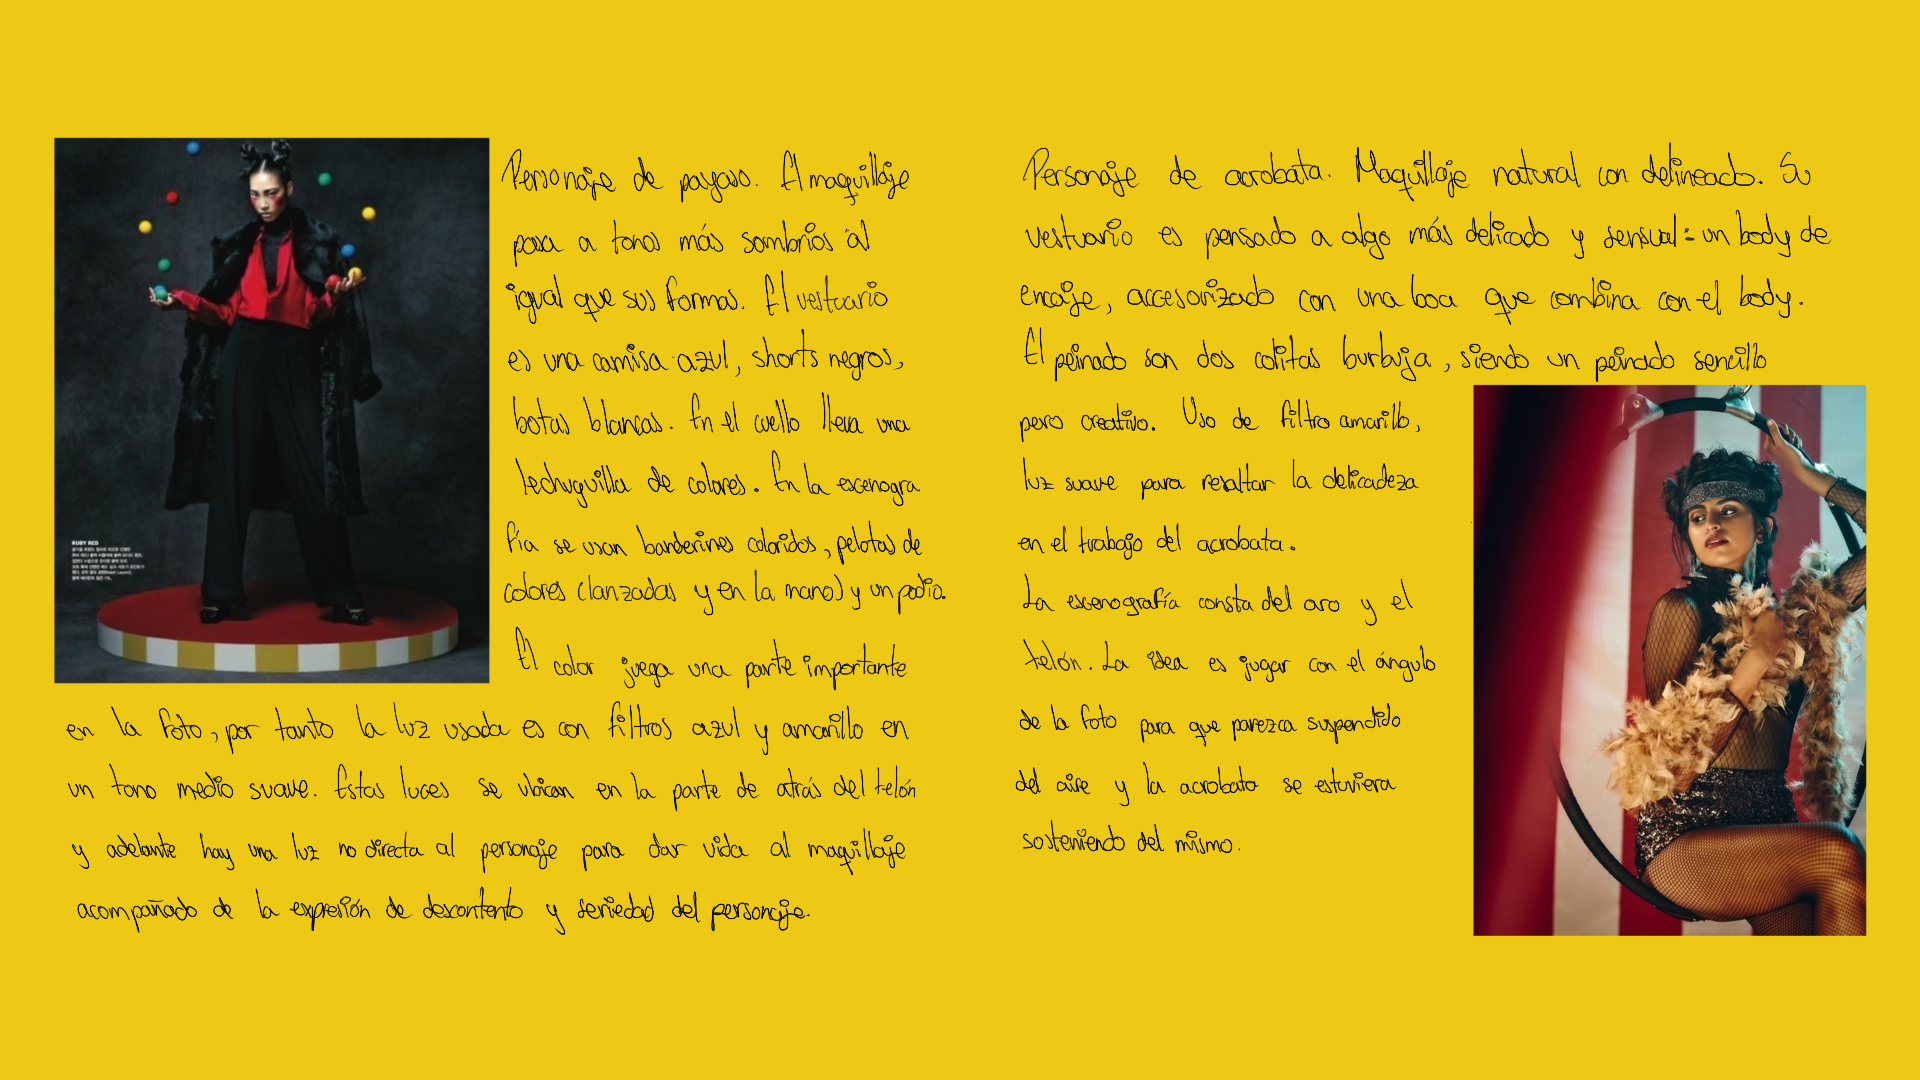 Personaje de payaso. El maquillaje
pasa a tonos más sombríos al
igual que sus formas. El vestuario
es una camisa azul, shorts negros,
botas blancas. En el cuello lleva una
lechuguilla de colores. En la escenogra
fía se usan banderines coloridos, pelotas de
colores (lanzadas y en la mano) y un podio.
El color juega una parte importante
en la foto, por tanto la luz usada es con filtros azul y amarillo en
un tono medio suave. Estas luces se ubican en la parte de atrás del telón
y adelante hay una luz no directa al personaje para dar vida al maquillaje
acompañado de la expresión de descontento y seriedad del personaje.
RUBY RED
Personaje de acrobata. Maquillaje natural con delineado. Su
vestuario es pensado a algo más delicado y sensual: un body de
encaje, accesorizado con una boa que combina con el body.
El peinado son dos colitas burbuja, siendo un peinado sencillo
pero creativo. Uso de filtro amarillo,
luz suave para resaltar la delicadeza
en el trabajo del acrobata.
La escenografía consta del aro y el
telón. La idea es jugar con el ángulo
de la foto para que parezca suspendido
del aire y la acrobata se estuviera
sosteniendo del mismo.